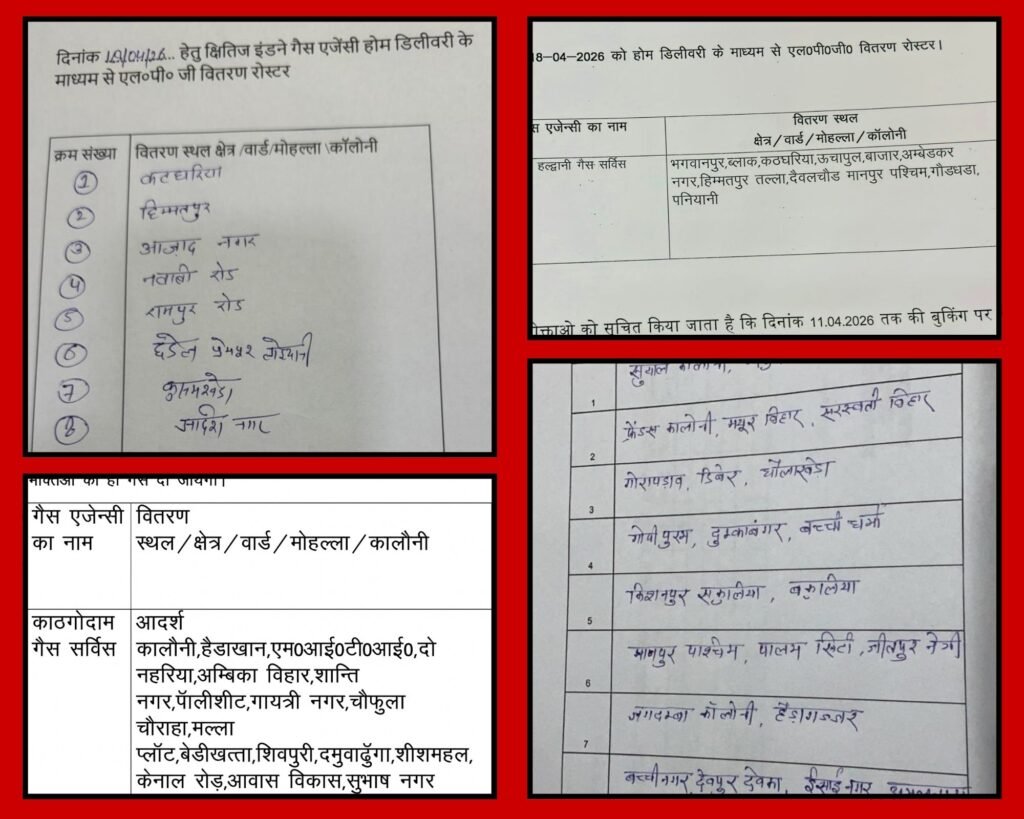 दिनांक 18/04/26... हेतु क्षितिज इंडने गैस एजेंसी होम डिलीवरी के
माध्यम से एल०पी० जी वितरण रोस्टर
क्रम संख्या वितरण स्थल क्षेत्र/वार्ड/मोहल्ला\कॉलोनी
1 कठघरिया
2 हिम्मतपुर
3 आज़ाद नगर
4 नवाबी रोड
5 रामपुर रोड
6
7 कुसुमखेड़ा
8 नगर
18-04-2026 को होम डिलीवरी के माध्यम से एल0पी0जी0 वितरण रोस्टर।
स एजेन्सी का नाम वितरण स्थल
क्षेत्र/वार्ड/मोहल्ला/कॉलोनी
हल्द्वानी गैस सर्विस भगवानपुर,ब्लाक,कठघरिया,ऊचापुल,बाजार,अम्बेडकर
नगर,हिम्मतपुर तल्ला,दैवलचौड मानपुर पश्चिम,गौडधडा,
पनियानी
को सुचित किया जाता है कि दिनांक 11.04.2026 तक की बुकिंग पर
गैस एजेन्सी वितरण
का नाम स्थल/क्षेत्र/वार्ड/मोहल्ला/कालौनी
काठगोदाम आदर्श
गैस सर्विस कालौनी,हैडाखान,एम0आई0टी0आई0,दो
नहरिया,अम्बिका विहार,शान्ति
नगर,पॅालीशीट,गायत्री नगर,चौफुला
चौराहा,मल्ला
प्लॉट,बेडीखत्ता,शिवपुरी,दमुवाढुॅगा,शीशमहल,
केनाल रोड़,आवास विकास,सुभाष नगर
1
2 फ्रेंडस कालोनी, मयूर विहार, सरस्वती विहार
3 गोरापड़ाव, धौलाखेड़ा
4 गोपीपुरम, दुम्काबंगर, बच्ची धर्मा
5 किशनपुर सकुलिया, बकुलिया
6 मानपुर पश्चिम, पालम सिटी, जीतपुर नेगी
7 जगदम्बा कॉलोनी, हैड़ागज्जर
बच्चीनगर, देवपुर देवका, ईसाईनगर